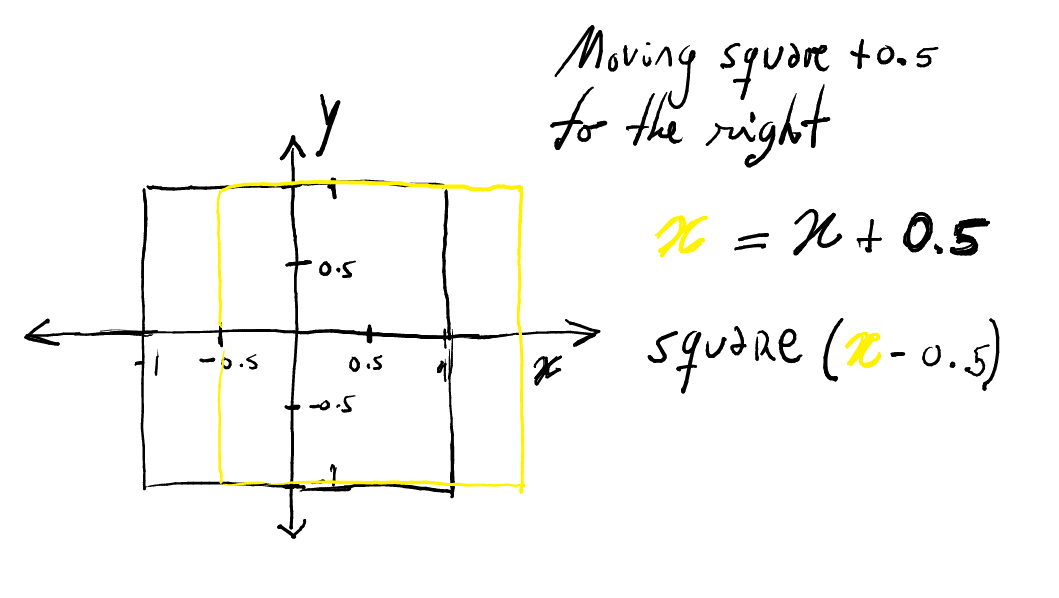 Moving square +0.5
to the right
y
x = x + 0.5
0.5
square (x - 0.5)
-1
-0.5
0.5
1
x
-0.5